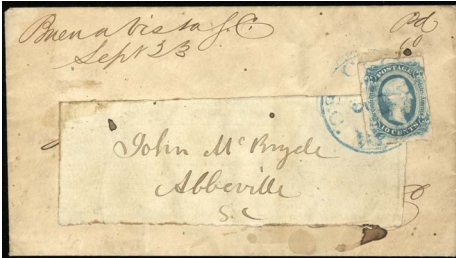 Buena Vista S.C.
Sept 23
Pd
10
POSTAGE
10 CENTS
John McBryde
Abbeville
S.C